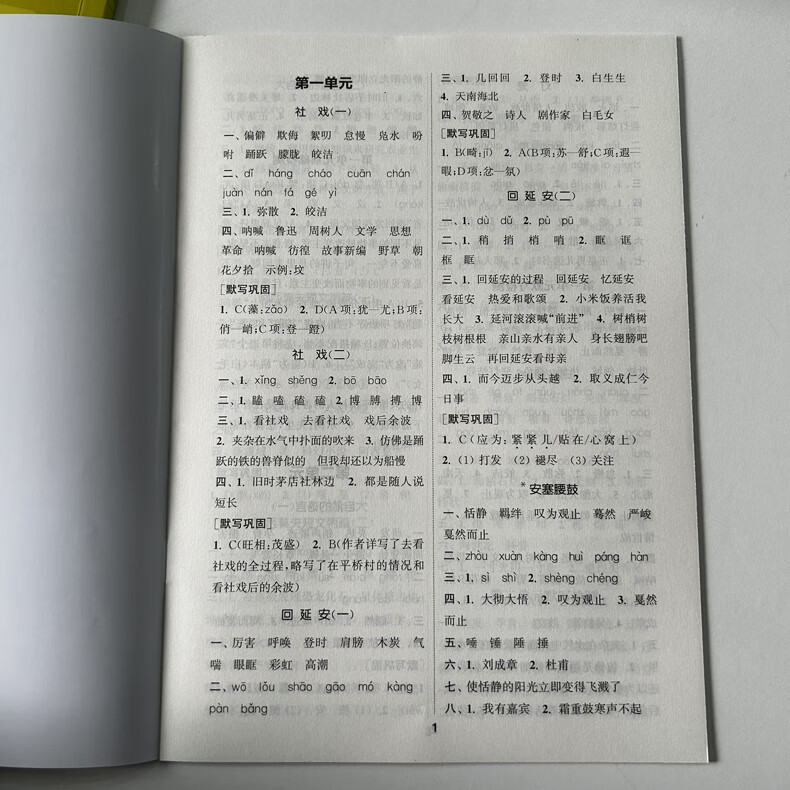 第一单元
社 戏(一)
一、偏僻 欺侮 絮叨 怠慢 凫水 吩
咐 踊跃 朦胧 皎洁
二、dī háng cháo cuān chán
juàn nán fá gé yì
三、1. 弥散 2. 皎洁
四、呐喊 鲁迅 周树人 文学 思想
革命 呐喊 彷徨 故事新编 野草 朝
花夕拾 示例:坟
[默写巩固]
1. C(藻:zǎo) 2. D(A项:犹—尤;B项:
俏—峭;C项:登—蹬)
社 戏(二)
一、1. xǐng shěng 2. bō bāo
二、1. 瞌 嗑 磕 磕 2. 博 膊 搏 博
三、1. 看社戏 去看社戏 戏后余波
2. 夹杂在水气中扑面的吹来 3. 仿佛是踊
跃的铁的兽脊似的 但我却还以为船慢
四、1. 旧时茅店社林边 2. 都是随人说
短长
[默写巩固]
1. C(旺相:茂盛) 2. B(作者详写了去看
社戏的全过程,略写了在平桥村的情况和
看社戏后的余波)
回 延 安(一)
一、厉害 呼唤 登时 肩膀 木炭 气
喘 眼眶 彩虹 高潮
二、wō lǒu shāo gāo mó kàng
pàn bǎng
三、1. 几回回 2. 登时 3. 白生生
4. 天南海北
四、贺敬之 诗人 剧作家 白毛女
[默写巩固]
1. B(畸:jī) 2. A(B项:苏—舒;C项:遐—
暇;D项:忿—氛)
回 延 安(二)
一、1. dù dǔ 2. pù pū
二、1. 稍 捎 梢 哨 2. 眶 诓
框 眶
三、1. 回延安的过程 回延安 忆延安
看延安 热爱和歌颂 2. 小米饭养活我
长大 3. 延河滚滚喊“前进” 4. 树梢树
枝树根根 亲山亲水有亲人 身长翅膀吧
脚生云 再回延安看母亲
四、1. 而今迈步从头越 2. 取义成仁今
日事
[默写巩固]
1. C(应为:紧紧儿/贴在/心窝上)
2. (1) 打发 (2) 褪尽 (3) 关注
*安塞腰鼓
一、恬静 羁绊 叹为观止 蓦然 严峻
戛然而止
二、zhòu xuàn kàng huì páng hàn
三、1. sì shì 2. shèng chéng
四、1. 大彻大悟 2. 叹为观止 3. 戛然
而止
五、唾 锤 陲 捶
六、1. 刘成章 2. 杜甫
七、使恬静的阳光立即变得飞溅了
八、1. 我有嘉宾 2. 霜重鼓寒声不起
1